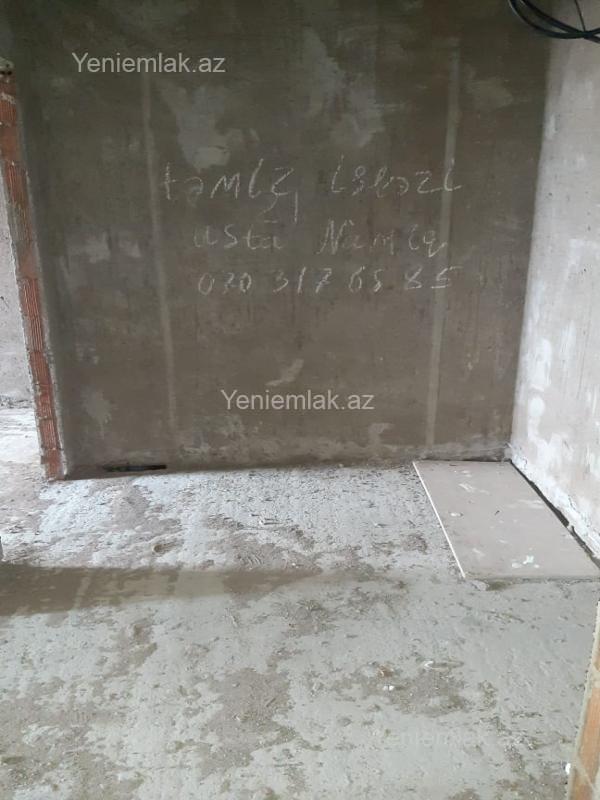 Yeniemlak.az
təmiz işləri
usta Namiq
070 317 65 85
Yeniemlak.az
Yeniemlak.az